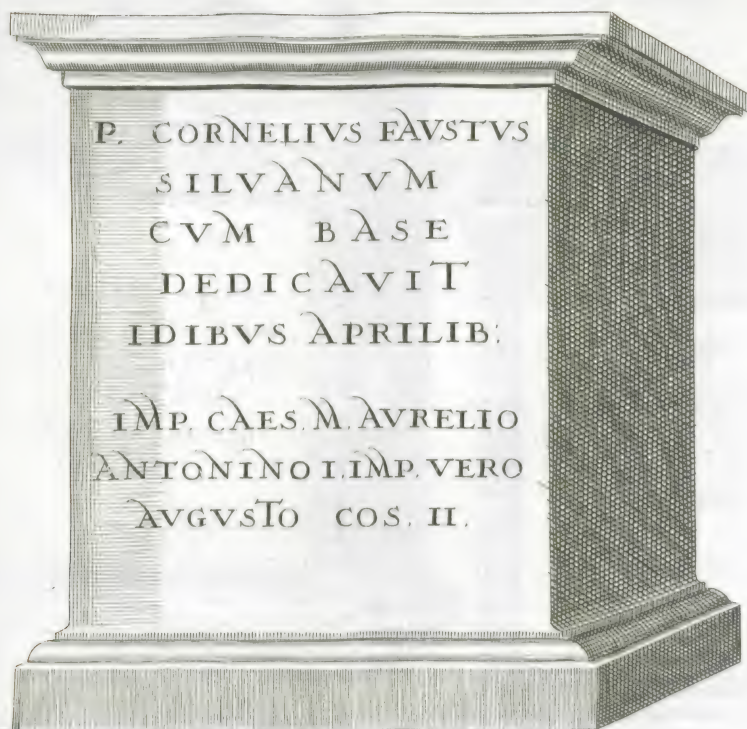 P. CORNELIVS FAVSTVS
SILVANVM
CVM BASE
DEDICAVIT
IDIBVS APRILIB:
IMP. CAES. M. AVRELIO
ANTONINO I. IMP. VERO
AVGVSTO COS. II.